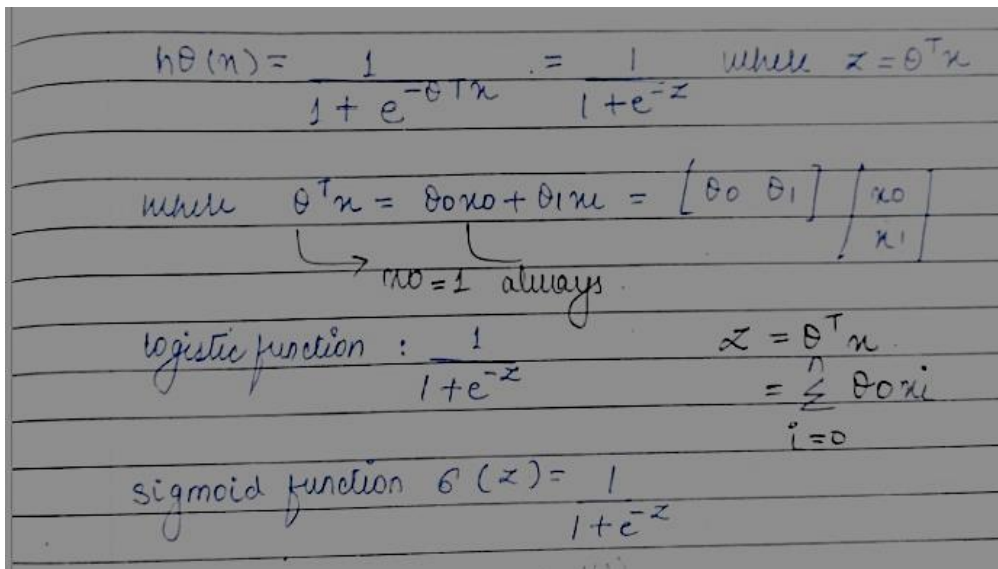 hθ(x) = 1 / (1 + e^(-θ^T x)) = 1 / (1 + e^(-z)) where z = θ^T x
where θ^T x = θ0x0 + θ1x1 = [θ0 θ1] [x0 x1]
x0 = 1 always.
logistic function : 1 / (1 + e^(-z))
z = θ^T x.
= Σ^n_(i=0) θ0xi
sigmoid function σ(z) = 1 / (1 + e^(-z))